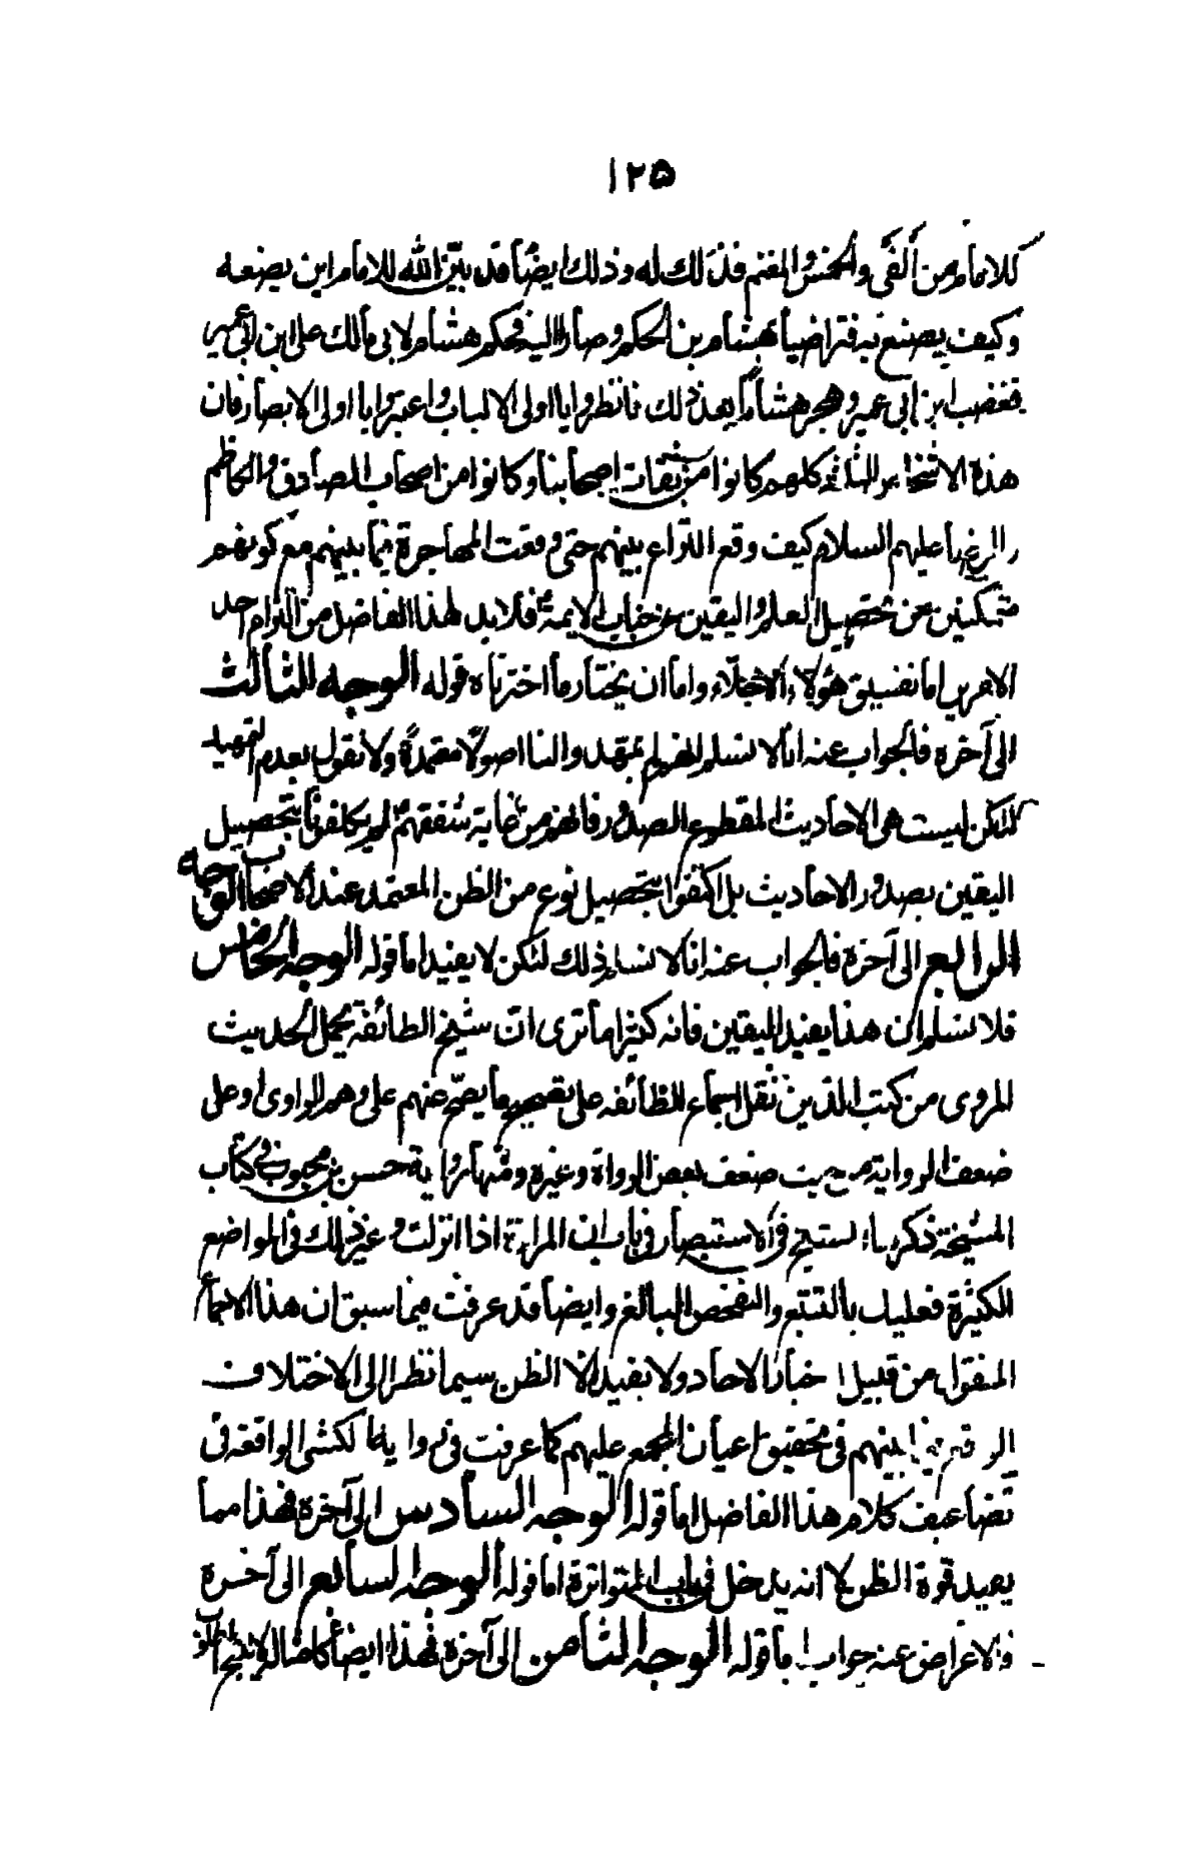 ١٢٥
للامام من الفئ والخمس والمغنم فذلك له وذلك ايضاً قد بيّن الله للامام اين يضعه
وكيف يصنع به فتراضيا بهشام بن الحكم وصارا اليه فحكم هشام لابي مالك على ابن ابي عمير
فغضب ابن ابي عمير وهجر هشاماً بعد ذلك فانظروا يا اولى الالباب واعتبروا يا اولى الابصار فان
هذه الاشخاص الثلثة كلهم كانوا من ثقات اصحابنا وكانوا من اصحاب الصادق والكاظم
والرضا عليهم السلام كيف وقع النزاع بينهم حتى وقعت المهاجرة فيما بينهم مع كونهم
متمكنين من تحصيل العلم واليقين عن جناب الائمة فلا بد لهذا الفاضل من التزام احد
الامرين اما تفسيق هؤلاء الاجلاء واما ان يختار ما اخترناه قوله الوجه الثالث
الى آخره فالجواب عنه انا لا نسلم انهم لم يمهدوا لنا اصولاً معتمدة ولا نقول بعدم التمهيد
لكن ليست هى الاحاديث المقطوع الصدور فانهم من غاية شفقتهم لم يكلفونا بتحصيل
اليقين بصدور الاحاديث بل اكتفوا بتحصيل نوع من الظن المعتمد عند الاصحاب الوجه
الرابع الى آخره فالجواب عنه انا لا نساذ ذلك لكن لا يفيد اما قوله الوجه الخامس
فلا نسلم ان هذا يفيد اليقين فانه كثيرا ما ترى ان شيخ الطائفة يحمل الحديث
المروى من كتب الذين نقل اجماع الطائفه على تصحيح ما يصح عنهم على وهم الراوى او على
ضعف الرواية من حيث ضعف بعض الرواة وغيره ومنها رواية حسن بن محبوب في كتاب
المشيخة ذكرها الشيخ في الاستبصار في باب ان المراءة اذا انزلت وغير ذلك في المواضع
الكثيرة فعليك بالتتبع والتفحص البالغ وايضا قد عرفت فيما سبق ان هذا الاجماع
المنقول من قبيل اخبار الاحاد ولا يفيد الا الظن سيما نظرا الى الاختلاف
الواقع فيما بينهم فى تحقيق اعيان المجمع عليهم كما عرفت فى رواية الكشى الواقعه فى
تضاعيف كلام هذا الفاضل اما قوله الوجه السادس الى آخره فهذا مما
يفيد قوة الظن لا انه يدخل في باب المتواترة اما قوله الوجه السابع الى آخره
فالاعراض عنه جواب اما قوله الوجه الثامن الى آخره فهذا ايضاً كامثاله لا ينتج